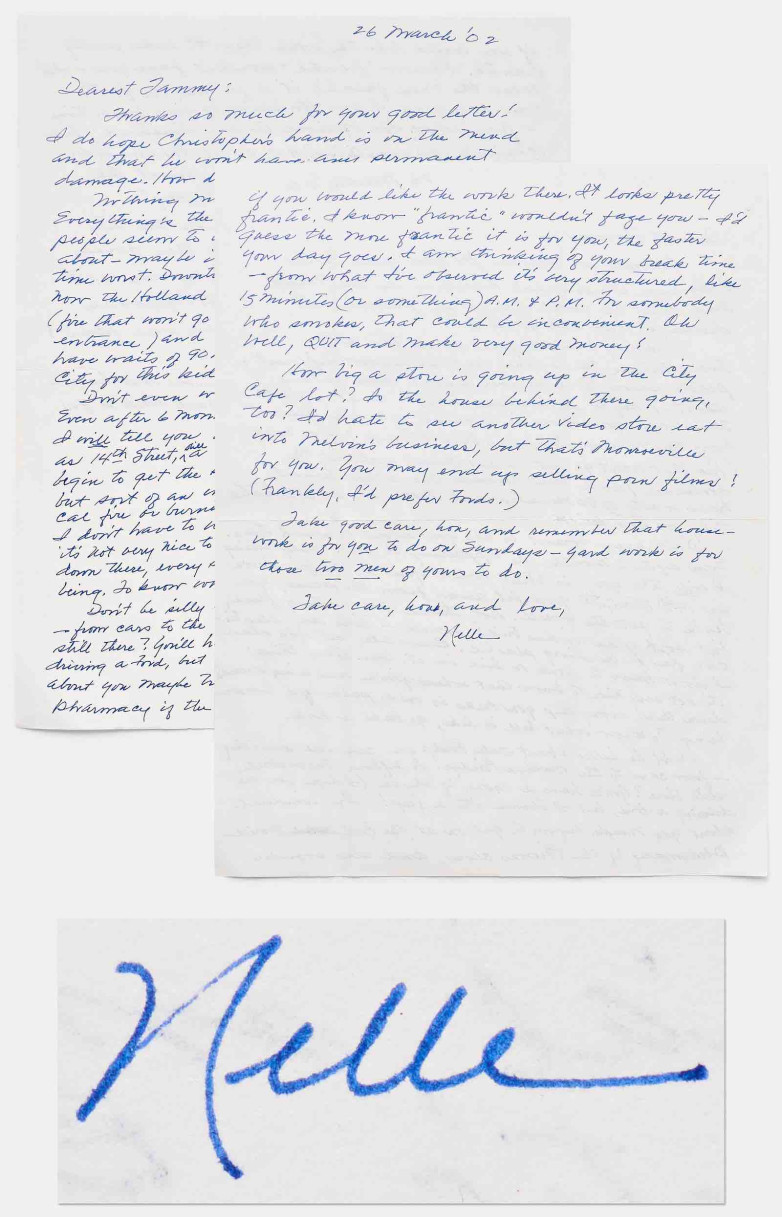 26 March '02
Dearest Tammy:
Thanks so much for your good letter!
I do hope Christopher's hand is on the mend
and that he won't have any permanent
damage. How d
Nothing m
Everything's the
people seem to
about – maybe i
time worst. Downt
now the Holland
(fire that won't go
entrance) and
have waits of 90.
City for this kid
Don't even w
Even after 6 mon
I will tell you
as 14th Street,
begin to get the
but sort of an
cal fire or burn
I don't have to
it's not very nice to
down there, every
being. To know
Don't be silly
– from cars to the
still there? You'll h
driving a Ford, but
about you maybe
Pharmacy if the
if you would like the work there. It looks pretty
frantic. I know "frantic" wouldn't faze you – I'd
guess the more frantic it is for you, the faster
your day goes. I am thinking of your break time
– from what I've observed it's very structured, like
15 minutes (or something) A.M. & P.M. For somebody
who smokes, that could be inconvenient. Oh
well, QUIT and make very good money!
How big a store is going up in the City
Cafe lot? Is the house behind there going,
too? I'd hate to see another video store eat
into Melvin's business, but that's Monroeville
for you. You may end up selling porn films!
(Frankly, I'd prefer Fords.)
Take good care, hon, and remember that house-
work is for you to do on Sundays – yard work is for
those two men of yours to do.
Take care, hon, and love,
Nelle
Nelle